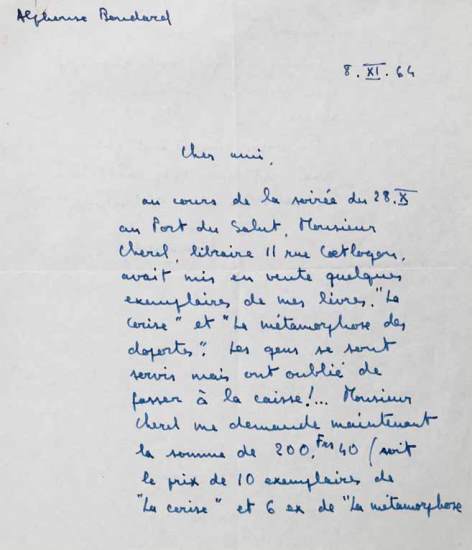 Alphonse Boudard
8. XI. 64
Cher ami,
au cours de la soirée du 28. X
au Port du Salut, Monsieur
Cherel, libraire 11 rue Coetlogon,
avait mis en vente quelques
exemplaires de mes livres. "La
cerise" et "La métamorphose des
cloportes". Les gens se sont
servis mais ont oublié de
passer à la caisse!... Monsieur
Cherel me demande maintenant
la somme de 200,Frs 40 (soit
le prix de 10 exemplaires de
"La cerise" et 6 ex de "La métamorphose